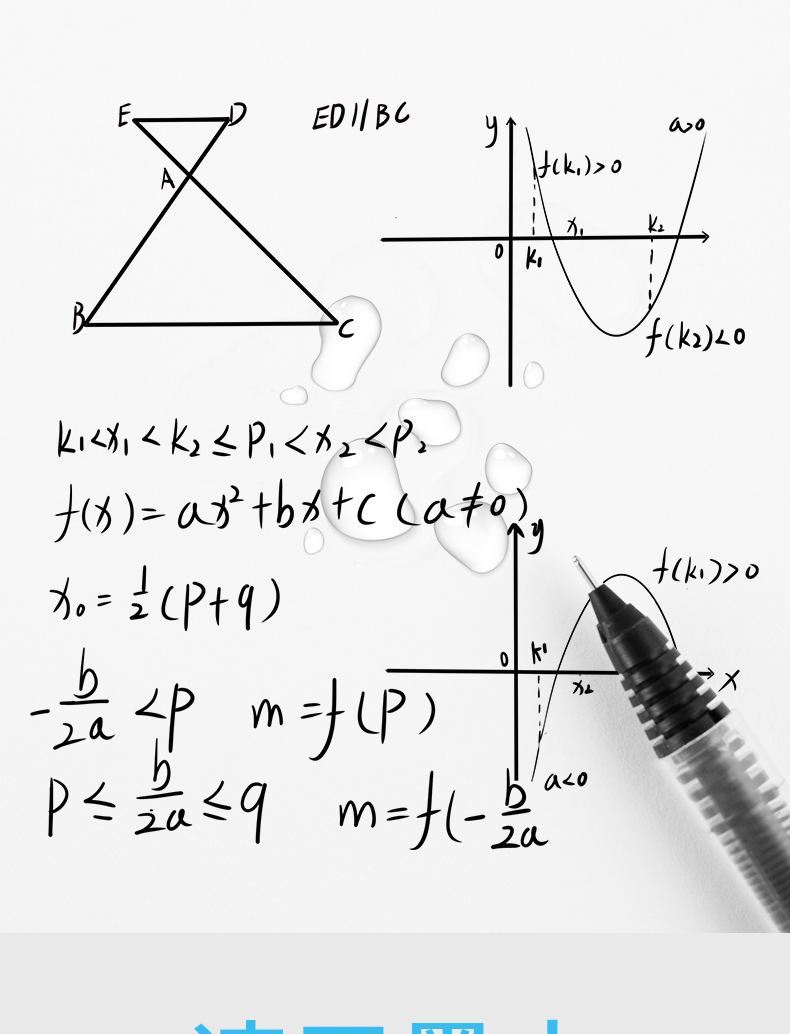 E D
ED//BC
A
B C
y a>0
f(k₁)>0
x₁ k₂
0 k₁
f(k₂)<0
k₁<x₁<k₂≤p₁<x₂<p₂
f(x)=ax²+bx+c (a≠0)
x₀=1/2(p+q)
-b/2a<p m=f(p)
p≤b/2a≤q m=f(-b/2a
y
f(k₁)>0
0 k₁
x₂ x
a<0